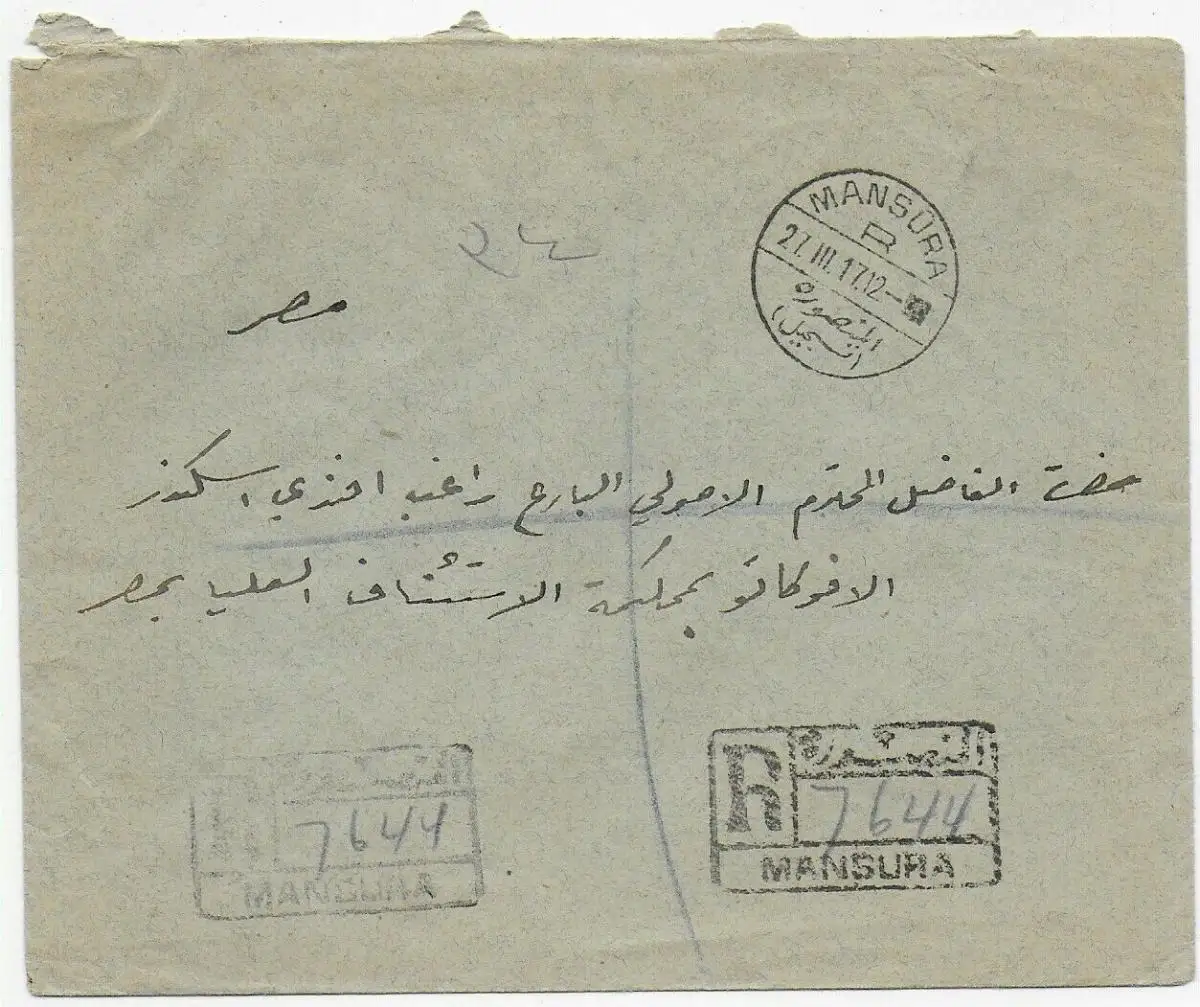 MANSŪRA
R
27.III.17.12-
المنصوره
(تسجيل)
مصر
حضرة الفاضل المحترم الاصولي البارع راغب افندي اسكندر
الافوكاتو بمحكمة الاستئناف العليا بمصر
المنصورة
7644
MANSURA
R المنصورة
7644
MANSURA